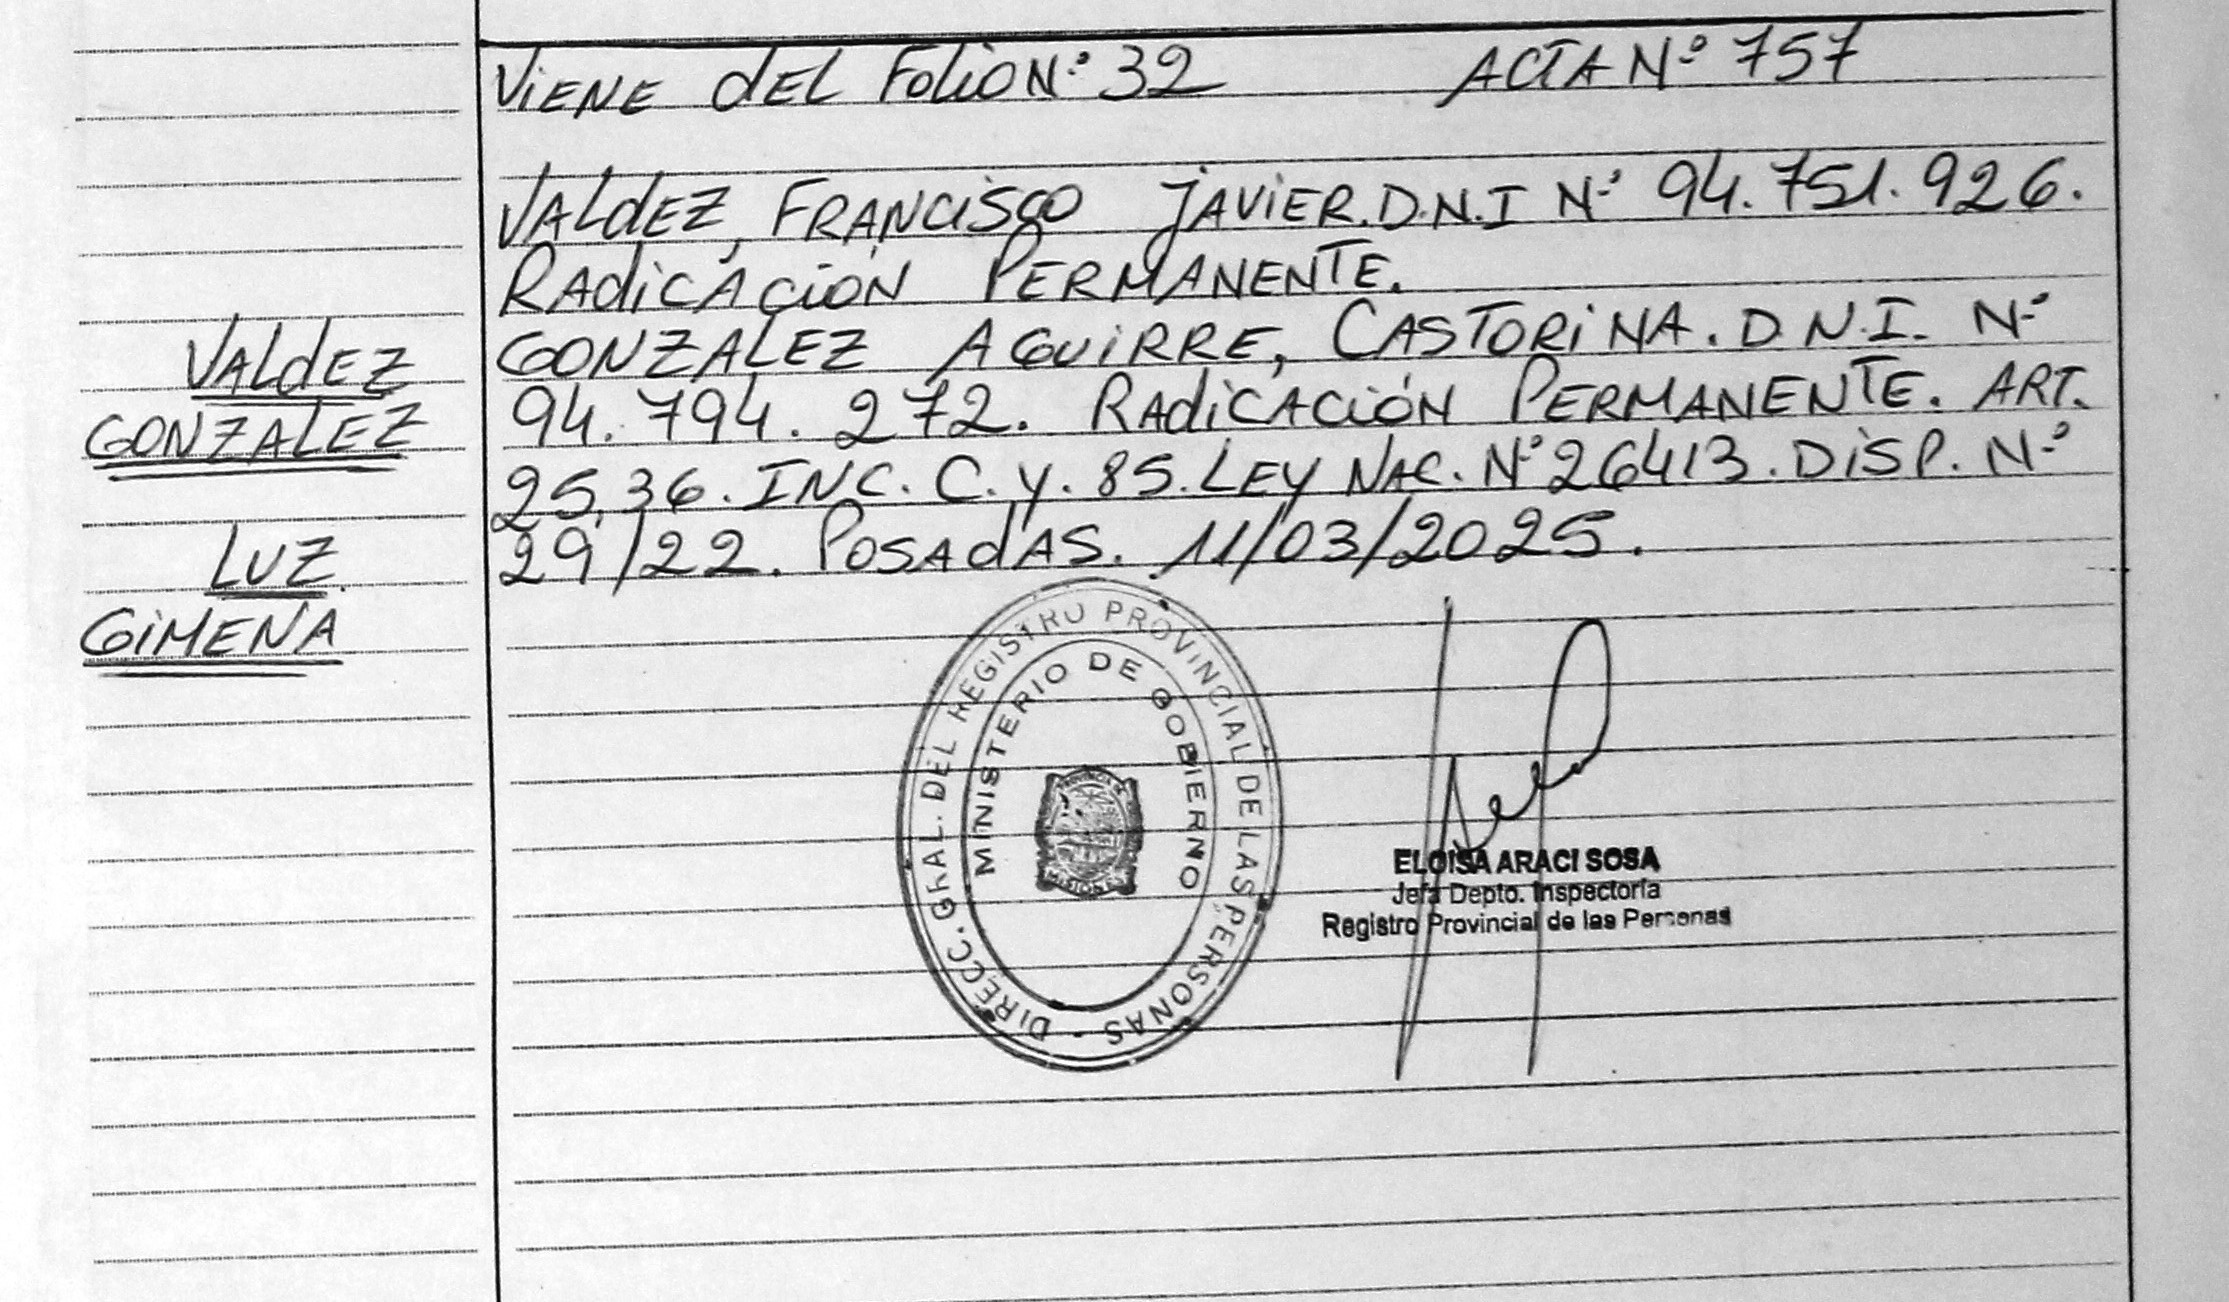 VIENE DEL FOLIO N° 32 ACTA N° 757
VALDEZ, FRANCISCO JAVIER. D.N.I N° 94.751.926.
RADICACIÓN PERMANENTE.
GONZALEZ AGUIRRE, CASTORINA. D.N.I. N°
94.794.272. RADICACIÓN PERMANENTE. ART.
25,36. INC. C. Y. 85. LEY NAC. N° 26413. DISP. N°
29/22. POSADAS. 11/03/2025.
VALDEZ
GONZALEZ
LUZ
GIMENA
DIRECC. GRAL. DEL REGISTRO PROVINCIAL DE LAS PERSONAS -
MINISTERIO DE GOBIERNO
MISIONES
ELOISA ARACI SOSA
Jefa Depto. Inspectoría
Registro Provincial de las Personas